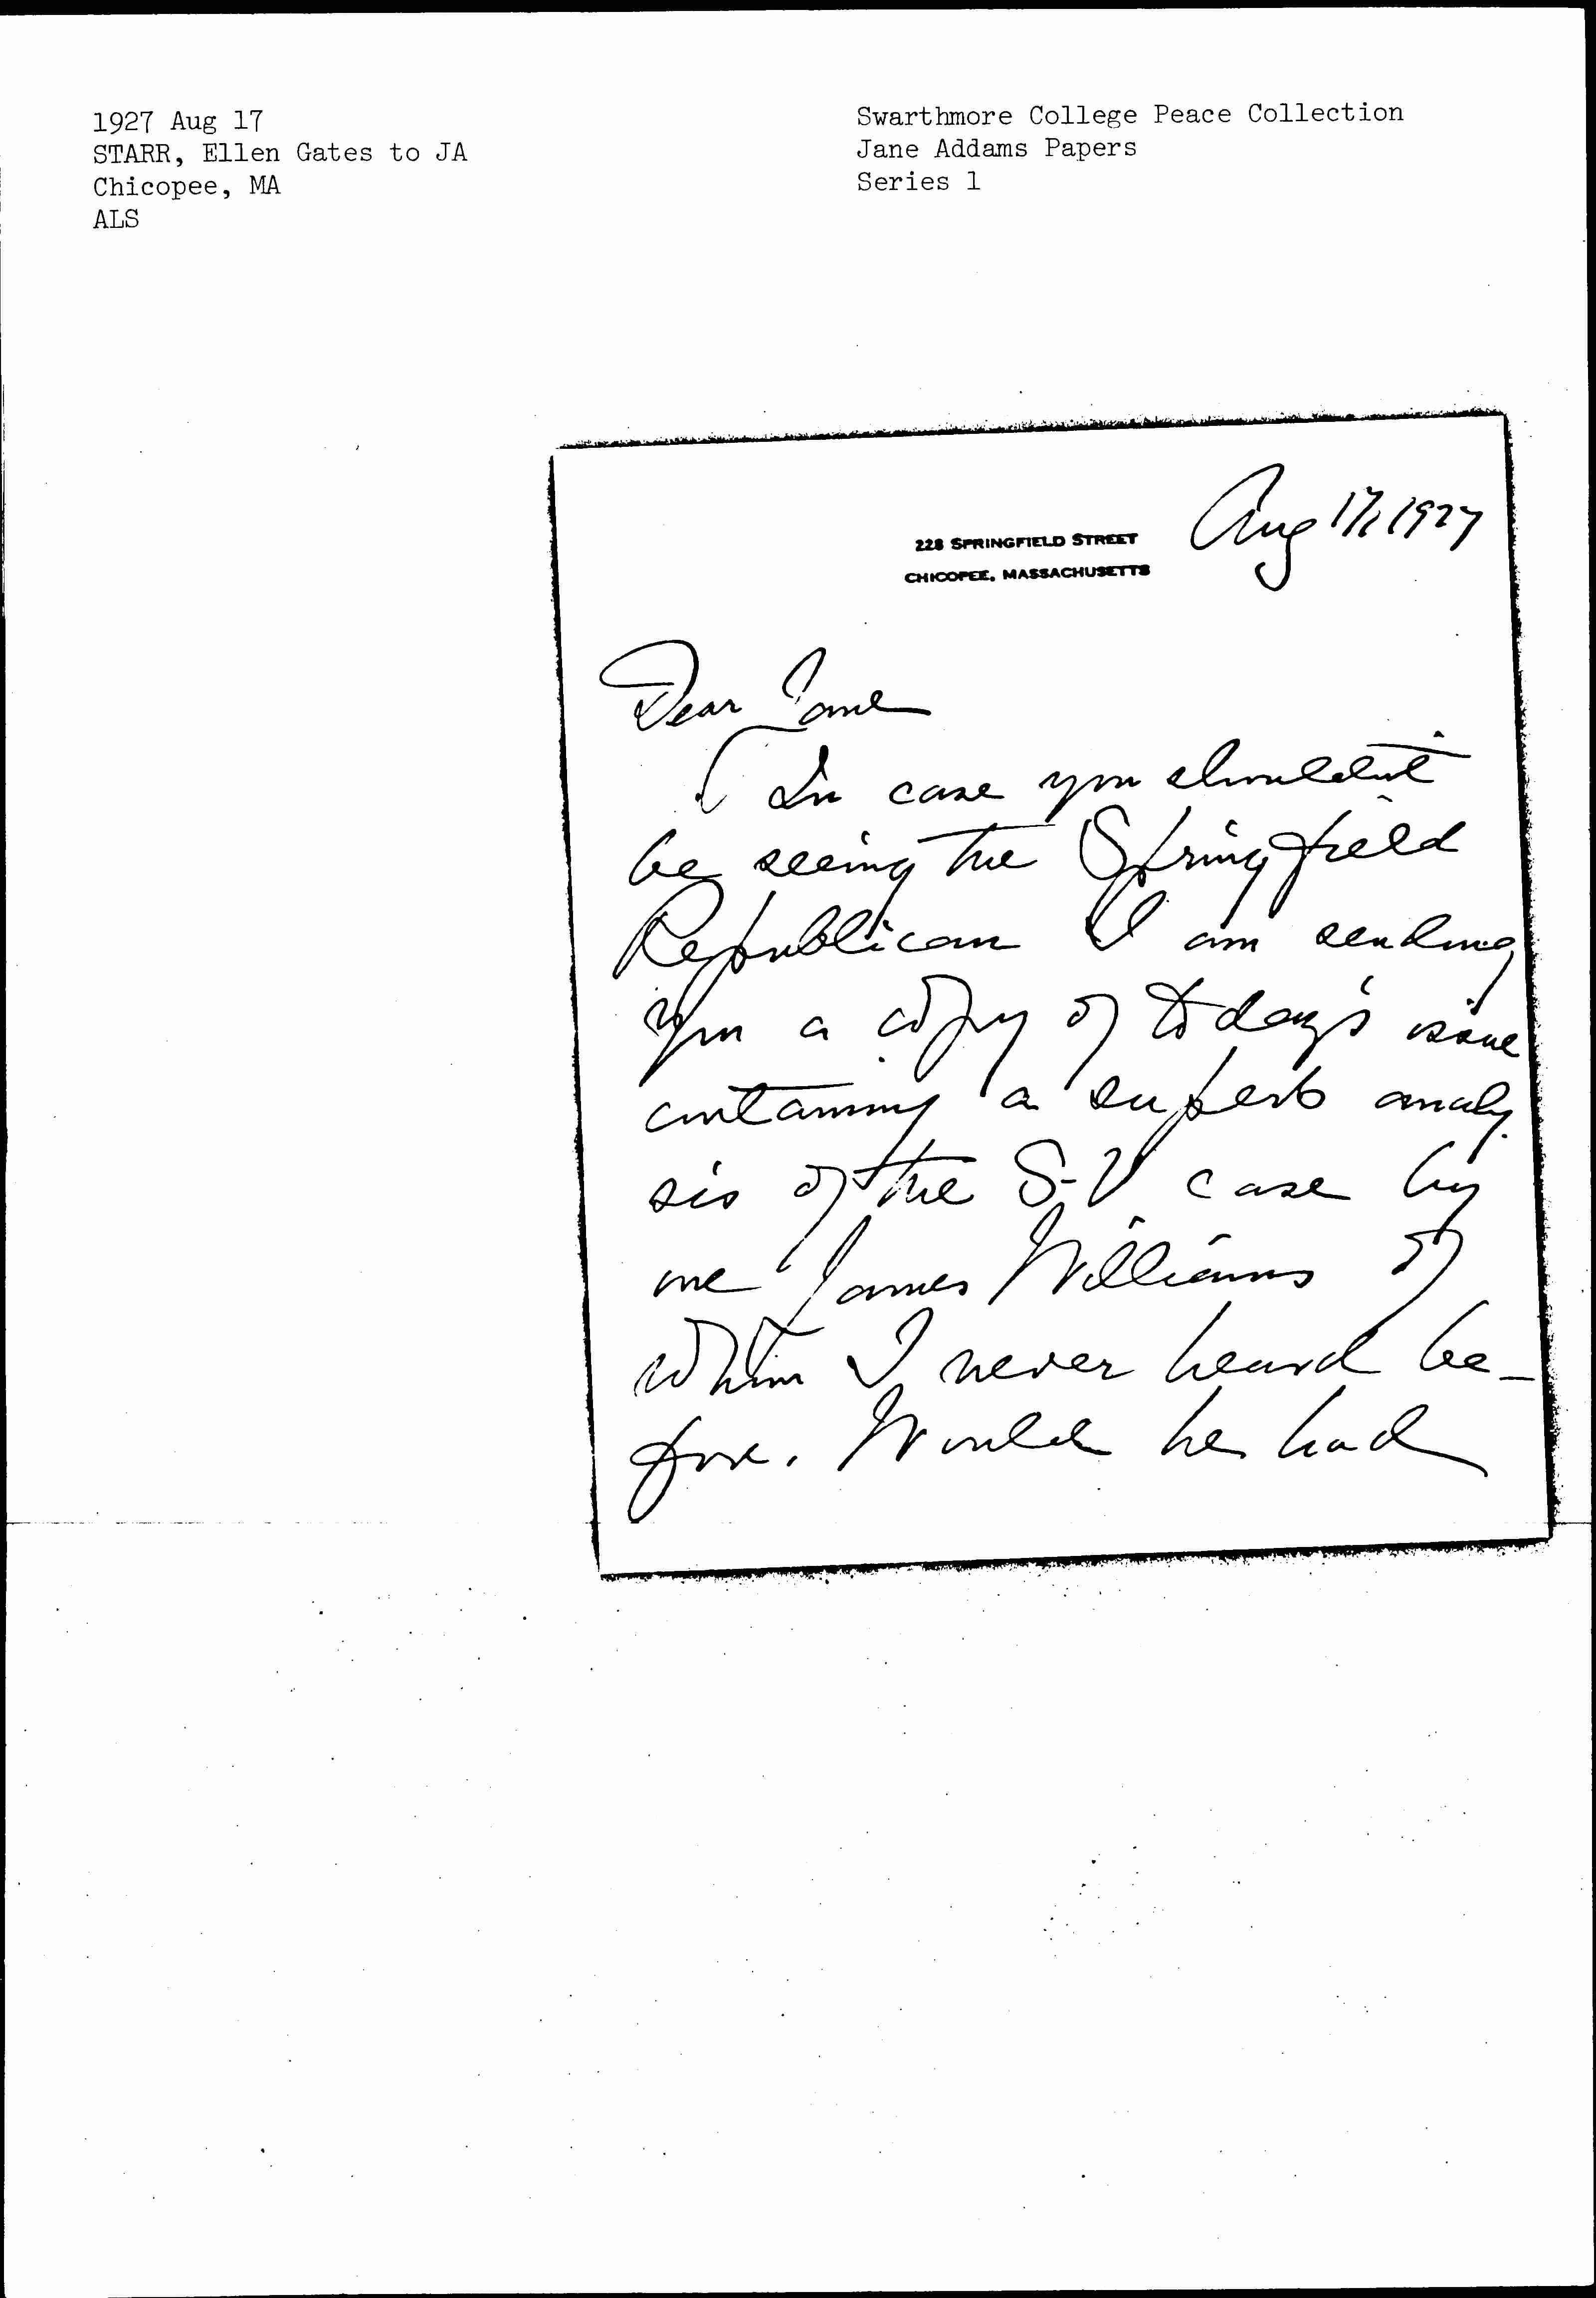 1927 Aug 17
STARR, Ellen Gates to JA
Chicopee, MA
ALS
Swarthmore College Peace Collection
Jane Addams Papers
Series 1
228 SPRINGFIELD STREET
CHICOPEE, MASSACHUSETTS
Aug 17, 1927
Dear Jane
In case you shouldn't
be seeing the Springfield
Republican I am sending
you a copy of today's issue
containing a superb analy
sis of the S-V case by
one James Williams of
whom I never heard be-
fore. Would he had